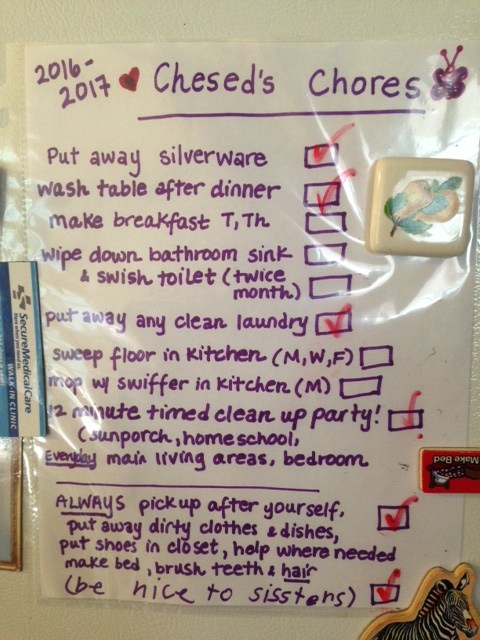 2016-
2017 Chesed's Chores
Put away silverware
wash table after dinner
make breakfast T, Th
wipe down bathroom sink
& swish toilet (twice
month)
put away any clean laundry
sweep floor in kitchen (M,W,F)
mop w/ swiffer in kitchen (M)
12 minute timed clean up party!
(sunporch, homeschool,
Everyday main living areas, bedroom
ALWAYS pick up after yourself,
put away dirty clothes & dishes,
put shoes in closet, help where needed
make bed, brush teeth & hair
(be nice to sissters)
SecureMedicalCare
WALK-IN CLINIC
Make Bed